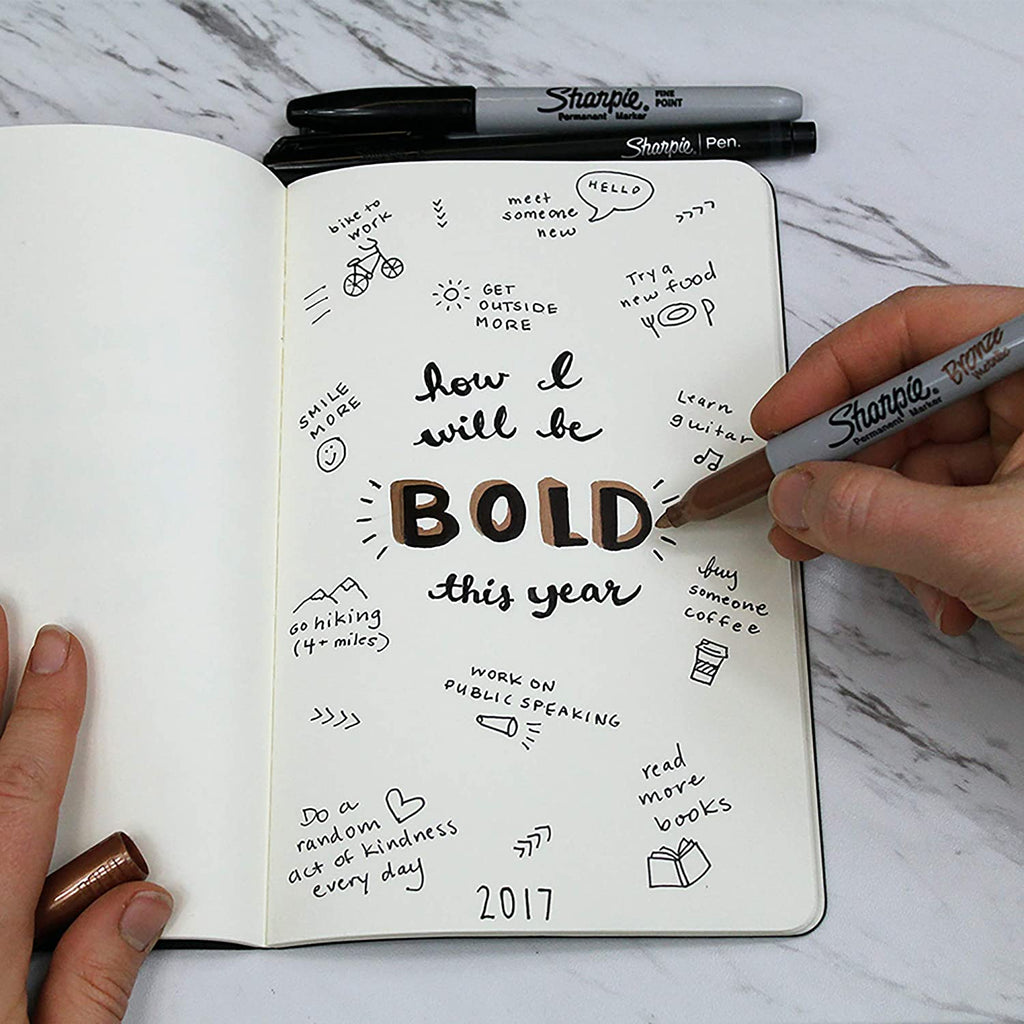 Sharpie. FINE POINT
Permanent Marker
Sharpie. Pen.
bike to
work
meet
someone
new
HELLO
GET
OUTSIDE
MORE
Try a
new food
how I
will be
BOLD
this year
SMILE
MORE
Learn
guitar
Sharpie.
Permanent Marker
Bronze
Metallic
Go hiking
(4+ miles)
buy
someone
coffee
WORK ON
PUBLIC SPEAKING
Do a
random
act of kindness
every day
read
more
books
2017